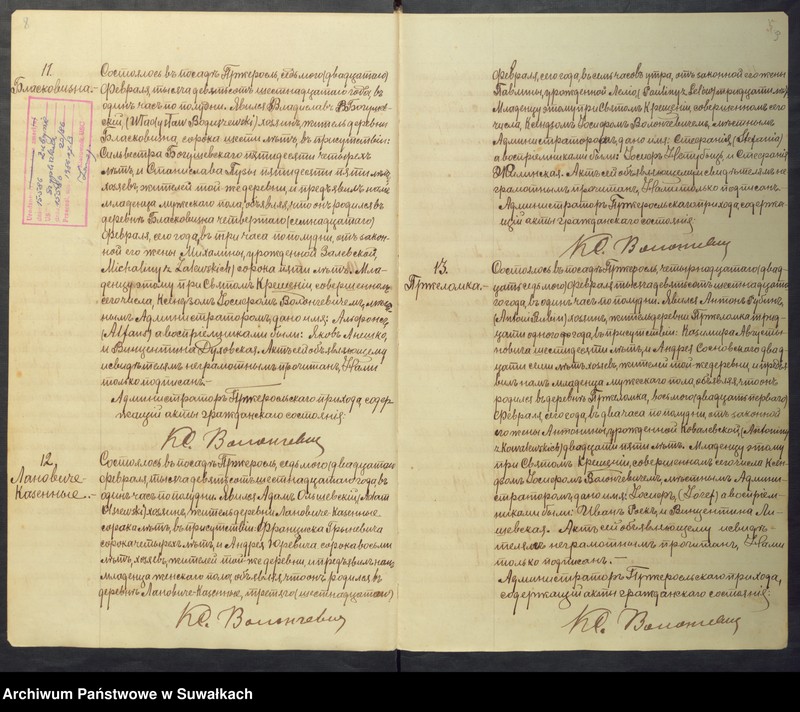 8
11.
Бласковизна.-
Состоялось въ посадѣ Пржеросль, седьмого (двадцатаго)
февраля, тысяча девятьсотъ шестнадцатаго года, въ
одинъ часъ по полудни. Явился Владиславъ Богушев-
скій, (Władysław Boguszewski) хозяинъ, житель деревни
Бласковизна, сорока шести лѣтъ, въ присутствіи:
Сильвестра Богушевскаго пятидесяти четырехъ
лѣтъ и Станислава Пузы пятидесяти пяти лѣтъ
хозяевъ, жителей той же деревни, и предъявилъ намъ
младенца мужескаго пола, объявляя, что онъ родился въ
деревнѣ Бласковизна четвертаго (семнадцатаго)
февраля, сего года, въ три часа по полудни, отъ закон-
ной его жены Михалины, урожденной Залевской,
(Michaliny z Zalewskich) сорока пяти лѣтъ. Мла-
денцу этому при Святомъ Крещеніи, совершенномъ
сего числа, Ксендзомъ Іосифомъ Волончевичемъ, мѣст-
нымъ Администраторомъ, дано имя: Альфонсъ
(Alfons) а воспріемниками были: Яковъ
и Винцентина Духовская. Актъ сей объявляющему
и свидѣтелямъ неграмотнымъ прочитанъ, Нами
только подписанъ.-
Администраторъ Пржеросльскаго прихода, содер-
жащій акты гражданскаго состоянія:
КС. Волончевичъ
12.
Лановиче-
Казенные.-
Состоялось въ посадѣ Пржеросль, седьмого (двадцатаго)
февраля, тысяча девятьсотъ шестнадцатаго года, въ
одинъ часъ по полудни. Явился Адамъ Ольшевскій, (Adam
Olszewski) хозяинъ, житель деревни Лановиче-Казенные
сорока лѣтъ, въ присутствіи: Франциска Гриневича
сорока четырехъ лѣтъ, и Андрея Юревича сорока восьми
лѣтъ, хозяевъ, жителей той-же деревни, и предъявилъ намъ
младенца женскаго пола, объявляя, что онъ родился въ
деревнѣ Лановиче-Казенные, третьяго (шестнадцатаго)
КС. Волончевичъ
9
февраля, сего года, въ восемь часовъ утра, отъ законной его жены
Павлины, урожденной
Младенцу этому при Святомъ Крещеніи, совершенномъ сего
числа, Ксендзомъ Іосифомъ Волончевичемъ, мѣстнымъ
Администраторомъ, дано имя: Стефанія, (Stefania)
а воспріемниками были: Іосифъ и Стефанія
Жилинская. Актъ сей объявляющему и свидѣтелямъ не-
грамотнымъ прочитанъ, Нами только подписанъ.
Администраторъ Пржеросльскаго прихода, содержа-
щій акты гражданскаго состоянія:
КС. Волончевичъ
13.
Пржеломка.-
Состоялось въ посадѣ Пржеросль, четырнадцатаго (двад-
цать седьмого) февраля, тысяча девятьсотъ шестнадцата-
го года, въ одинъ часъ по полудни. Явился Антонъ Рубинъ,
(Antoni Rubin) хозяинъ, житель деревни Пржеломка, трид-
цати одного года, въ присутствіи: Казимира Августы-
новича шестидесяти лѣтъ, и Андрея Сосновскаго двад-
цати семи лѣтъ, хозяевъ, жителей той же деревни, и предъя-
вилъ намъ младенца мужескаго пола, объявляя, что онъ
родился въ деревнѣ Пржеломка, восьмого (двадцать перваго)
февраля сего года, въ два часа по полудни, отъ законной
его жены Антонины, урожденной Ковалевской, (Antoniny
z Kowalewskich) двадцати пяти лѣтъ. Младенцу этому
при Святомъ Крещеніи, совершенномъ сего числа Ксен-
дзомъ Іосифомъ Волончевичемъ, мѣстнымъ Админи-
страторомъ, дано имя: Іосифъ, (Józef) а воспріем-
никами были: Иванъ и Винцентина Ли-
шевская. Актъ сей объявляющему и свидѣ-
телямъ неграмотнымъ прочитанъ, Нами
только подписанъ.-
Администраторъ Пржеросльскаго прихода,
содержащій акты гражданскаго состоянія:
КС. Волончевичъ
Archiwum Państwowe w Suwałkach